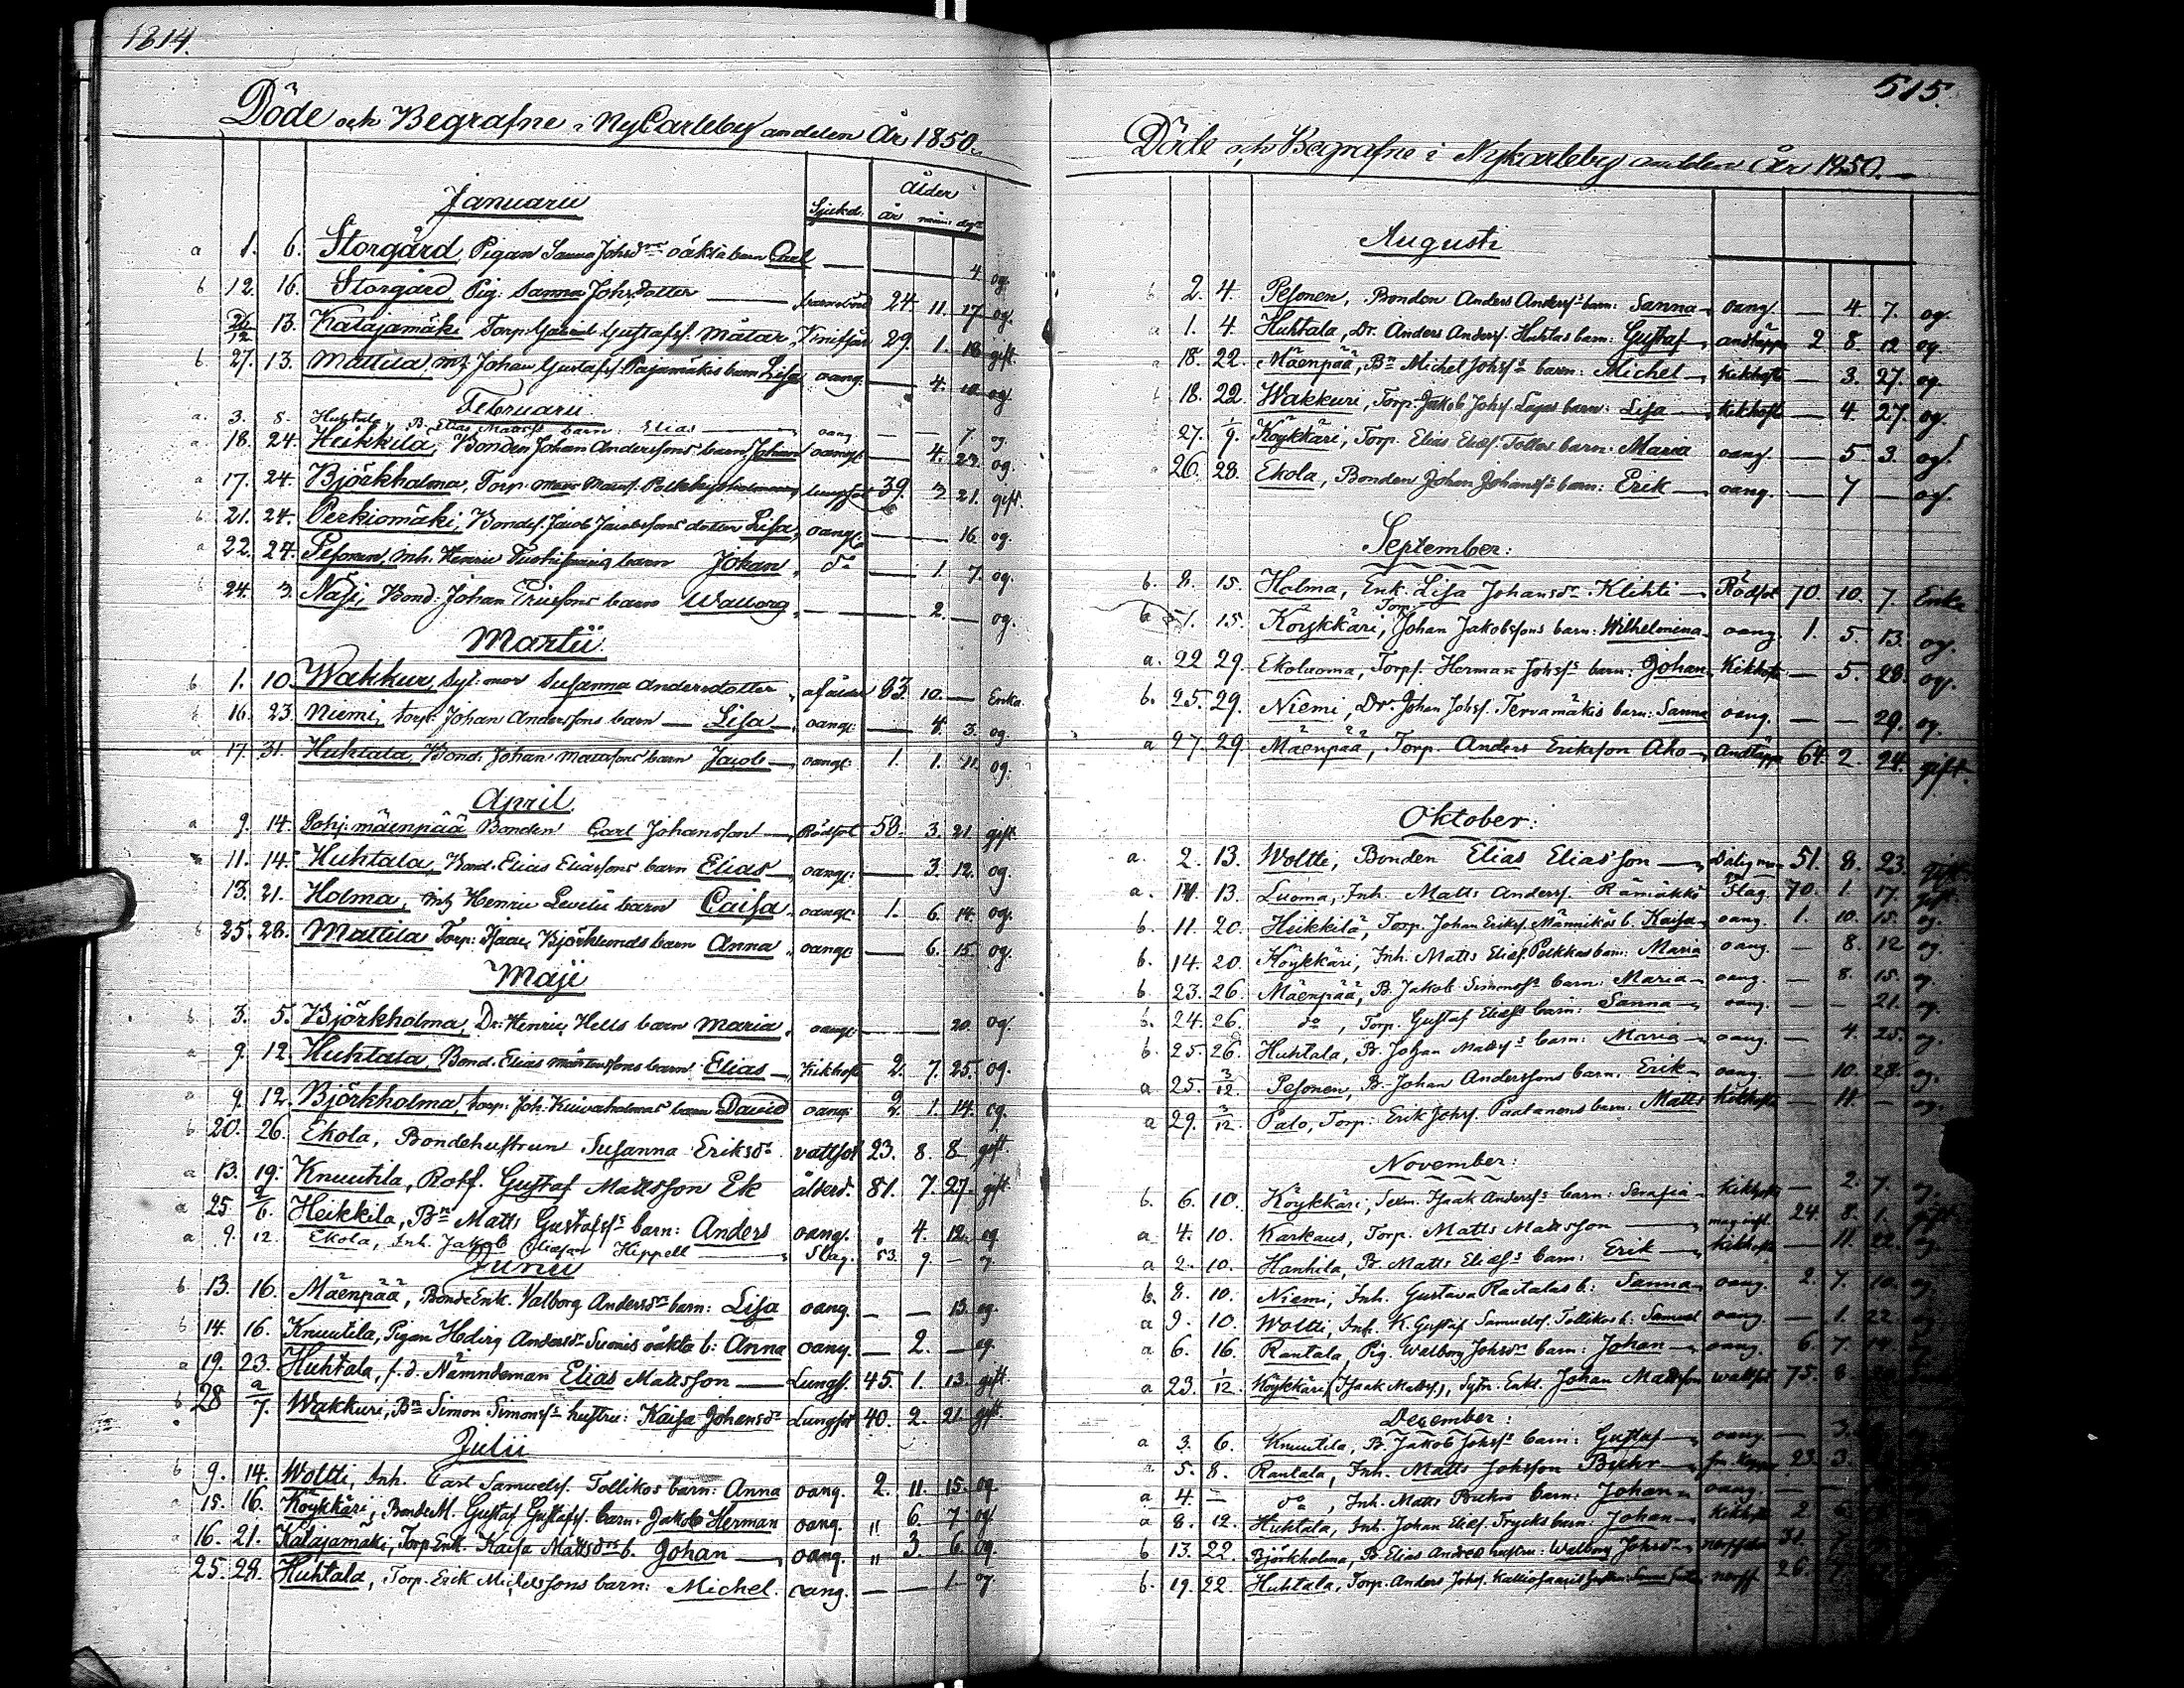 1814.
Döde och Begrafne i NyCarleby andelen År 1850.
Januarii
Sjukd. Ålder år mån: dag:
a 1. 6. Storgård, Pigan Sanna Johsdrs oäkta barn Carl — — — 4 og.
b 12. 16. Storgård, Pig: Sanna Johsdotter — barnsbörd 24. 11. 27 og.
26/12 13. Katajamäki Torp: Gabriel Gustafss. Mätar, Knifskär 29. 1. 18 gift.
b 27. 13. Mattila, inh. Johan Gustafss. Pajamäkis barn Lisa oang. — 4. 10 og.
Februarii
a. 3. 8. Huhtala, B. Elias Mattss. barn: Elias — oang. — — 7. og.
a 18. 24. Heikkilä, Bonden Johan Anderssons barn Johan oangl: — 4. 23. og.
a 17. 24. Björkholma, Torp. lungsot 39. 3 21. gift.
b. 21. 24. Perkiomäki, Bondes. Jacob Jacobssons dotter Lisa, oangl: — — 16. og.
a 22. 24. Pesonen, inh. Henric barn Johan, do — 1. 7. og.
b 24. 3. Näsi, Bond. Johan barn Walborg, — — 2. — og.
Martii
b 1. 10. Wakkur, Syt. mor Susanna Andersdotter, af ålder 83. 10. — Enka
b 16. 23. Niemi, torp: Johan Anderssons barn — Lisa — oangl: — 8. 3. og.
a 17. 31. Huhtala, Bond. Johan Mattssons barn Jacob — oangl: 1. 1. 11. og.
April
a 9. 14. Pohj. mäenpää Bonden Carl Johansson — Rödsot 58. 3. 21 gift
11. 14. Huhtala, Bond. Elias Eliassons barn Elias — oangl: — 3. 12. og.
13. 21. Holma, Inh Henric Leviäs barn Caisa, oangl: 1. 6. 14. og.
b 25. 28. Mattila Torp: Isaac Björklunds barn Anna, oangl: — 6. 15. og.
Maji
b. 3. 5. Björkholma, Dr: Henric Hells barn Maria, oangl: — — 20. og.
a 9. 12. Huhtala, Bond. Elias Mårtenssons barn Elias —, Kikhosta 2. 7. 25. og.
a 9. 12. Björkholma, torp: Joh. Kuivaholmas barn David oang: 2. 1. 14. og.
b 20. 26. Ekola, Bondehustrun Susanna Eriksdr vattsot 23. 8. 8 gift.
a 13. 19. Knuutila, Rotf. Gustaf Mattsson Ek ålderd. 81. 7. 27. gift.
a 25 2/6. Heikkilä, Bn Matts Gustafss. barn: Anders oang. „ 4. 12. og
a 9. 12. Ekola, Inh. Jakob Eliasson Kippell — Slag. 53. 9 — g.
Junii
b 13. 16. Mäenpää, BondeEnk. Valborg Andersdrs barn: Lisa oang. — — 13. og.
b 14. 16. Knuutila, Pigan Hedvig Andersdr Suonis oäkta b: Anna oang. — 2. — og.
a 19. 23. Huhtala, f. d. Nämndeman Elias Mattsson — Lungs. 45. 1. 13. gift.
b 28 2/7. Wakkuri, Bn Simon Simonss. hustru: Kaisa Johansdr Lungsot 40. 2. 21 gift.
Julii
b 9. 14. Woltti, Inh. Carl Samuelss. Tollikos barn: Anna oang. 2. 11. 15. og
a 15. 16. Köykkäri, BondeM. Gustaf Gustafss. barn: Jakob Herman oang. „ 6. 7. og
a 16. 21. Katajamäki, Torp Enk. Kaisa Mattsdrs b. Johan — oang. „ 3. 6. og.
25. 28. Huhtala, Torp. Erik Michelssons barn: Michel. oang. — — 1 og.
515.
Döde och Begrafne i Nykarleby andelen År 1850.
Augusti
b 2. 4. Pesonen, Bonden Anders Anderss. barn: Sanna oang. — 4 7. og.
a 1. 4. Huhtala, Dr. Anders Anderss. Huhtas barn: Gustaf — andtäppa 2 8. 12 og.
a 18. 22. Mäenpää, Bn Michel Johss. barn: Michel — kikhosta — 3. 27. og.
18. 22. Wakkuri, Torp. Jakob Johss. barn: Lisa — kikhosta — 4. 27. og.
27. 1/9. Köykkäri, Torp. Elias Eliess. Tollos barn: Maria oang. — 5 3. og.
a 26. 28. Ekola, Bonden Johan Johanss. barn: Erik — oang. — 7 — og.
September:
b. 8. 15. Holma, Enk. Lisa Johansdr Klihti — Rödsot 70. 10. 7. Enka
b. 1. 15. Köykkäri, Torp. Johan Jakobssons barn: Wilhelmina — oang. 1. 5. 13. og.
a. 22 29. Ekoluoma, Torp. Herman Johss. barn: Johan Kikhosta — 5. 28. og.
b. 25. 29. Niemi, Dr. Johan Johss. Tervamäkis barn: Sanna oang. — — 29. og.
a 27. 29. Mäenpää, Torp. Anders Eriksson Aho — Andtäppa 64. 2. 24. gift.
Oktober:
a. 2. 13. Woltti, Bonden Elias Eliasson — 51. 8. 23. gift
a. 11. 13. Luoma, Inh. Matts Anderss. Rämäkkö Slag. 70. 1. 17. gift
b. 11. 20. Heikkilä, Torp. Johan Erikss. Männikös b. Kaisa — oang. 1. 10. 15. og.
b. 14. 20. Köykkäri, Inh. Matts Eliess. Polkkas barn: Maria oang. — 8. 12 og.
b. 23. 26. Mäenpää, B. Jakob Simonss. barn: Maria — oang. — 8. 15. g.
b. 24. 26. do, Torp. Gustaf Eliess. barn: Sanna — oang. — — 21. og.
b. 25. 26. Huhtala, B. Johan Mattss. barn: Maria — oang. — 4. 25. og.
a 25. 3/12 Pesonen, B. Johan Anderssons barn. Erik — oang. — 10. 28. og.
a 29. 3/12. Palo, Torp. Erik Johss. Paalanens barn: Matts kikhosta — 11. — og.
November:
b. 6. 10. Köykkäri, Isaak Anderss. barn: Serafia — kikhosta — 2. 7. og.
a 4. 10. Karkaus, Torp. Matts Mattsson — 24. 8. 1. gift
a 2. 10. Hanhila, B. Matts Eliess. barn: Erik — kikhosta — 11. 22. og.
b. 8. 10. Niemi, Inh. Gustava Rautalas b: Sanna — oang. 2. 7. 10. og.
a 9. 10. Woltti, Inh. K. Gustaf Samuelss. Tollikos b: Samuel oang. — 1. 22
a 6. 16. Rantala, Pig. Walborg Johsdrs barn: Johan — oang. 6. 7. 14
a 23. 1/12. Köykkäri, (Isaak Mattss.), Sytn. Enkl. Johan Mattsson wattsot 75. 8
December:
a 3. 6. Knuutila, B. Jakob Johss. barn: Gustaf — oang. — 3.
a 5. 8. Rantala, Inh. Matts Johsson Buhr — 23. 3.
a 4. — do, Inh. Matts Buhrs barn: Johan — oang. —
a 8. 12. Huhtala, Inh. Johan Eliess. Trycks barn: Johan — kikhosta 2. 6
b 13. 22. Björkholma, B. Elias Andrea hustru: Walborg Johsdr — nerffeber 31.
b. 19. 22. Huhtala, Torp. Anders Johss. nerff. 26.